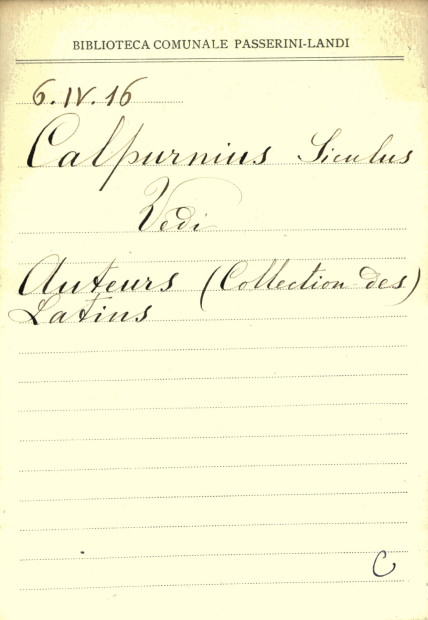 BIBLIOTECA COMUNALE PASSERINI-LANDI
6.IV.16
Calpurnius Siculus
Vedi
Auteurs (Collection des)
Latins
C